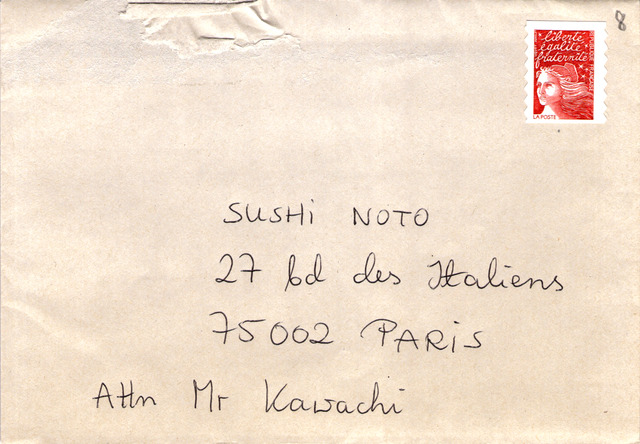 8
liberté
égalité
fraternité
RÉPUBLIQUE FRANÇAISE
LA POSTE
SUSHi NOTO
27 bd des Italiens
75002 PARiS
Attn Mr Kawachi